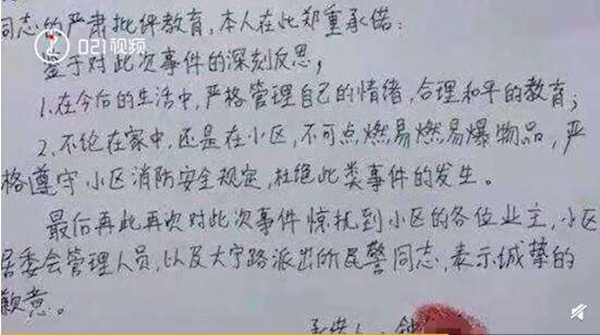 021视频
同志的严肃批评教育,本人在此郑重承诺:
鉴于对此次事件的深刻反思,
1.在今后的生活中,严格管理自己的情绪,合理和平的教育;
2.不论在家中,还是在小区,不可点燃易燃易爆物品,严
格遵守小区消防安全规定,杜绝此类事件的发生。
最后再此再次对此次事件惊扰到小区的各位业主,小区
居委会管理人员,以及大宁路派出所民警同志,表示诚挚的
歉意。
承诺人: